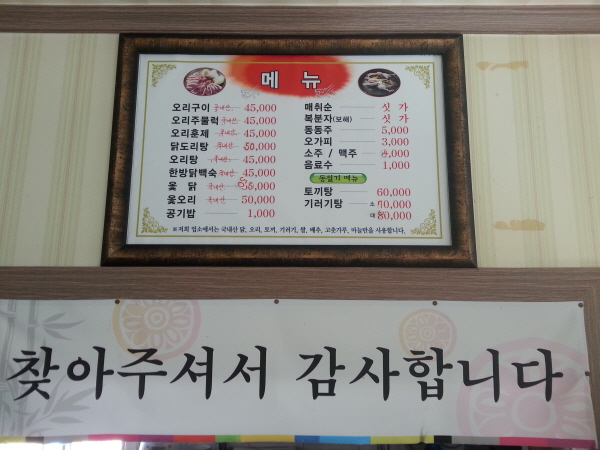 메 뉴
오리구이 국내산 45,000
오리주물럭 국내산 45,000
오리훈제 국내산 45,000
닭도리탕 국내산 50,000
오리탕 국내산 45,000
한방닭백숙 국내산 45,000
옻 닭 국내산
옻오리 국내산 50,000
공기밥 1,000
매취순 싯 가
복분자(보해) 싯 가
동동주 5,000
오가피 3,000
소주 / 맥주
음료수 1,000
동절기 메뉴
토끼탕 60,000
기러기탕 소
대
※저희 업소에서는 국내산 닭, 오리, 토끼, 기러기, 쌀, 배추, 고춧가루, 마늘만을 사용합니다.
찾아주셔서 감사합니다